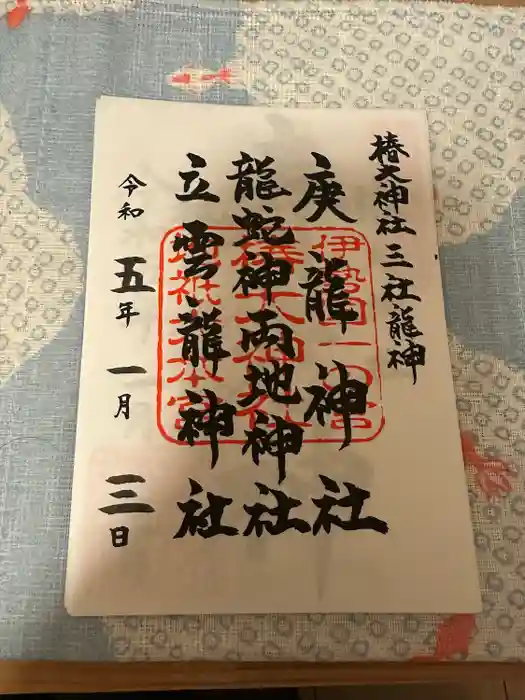 椿大神社 三社龍神
庚龍神社
龍蛇神両地神社
立雲龍神社
令和五年一月三日
伊勢国一の宮
椿大神社
地祇大本宮